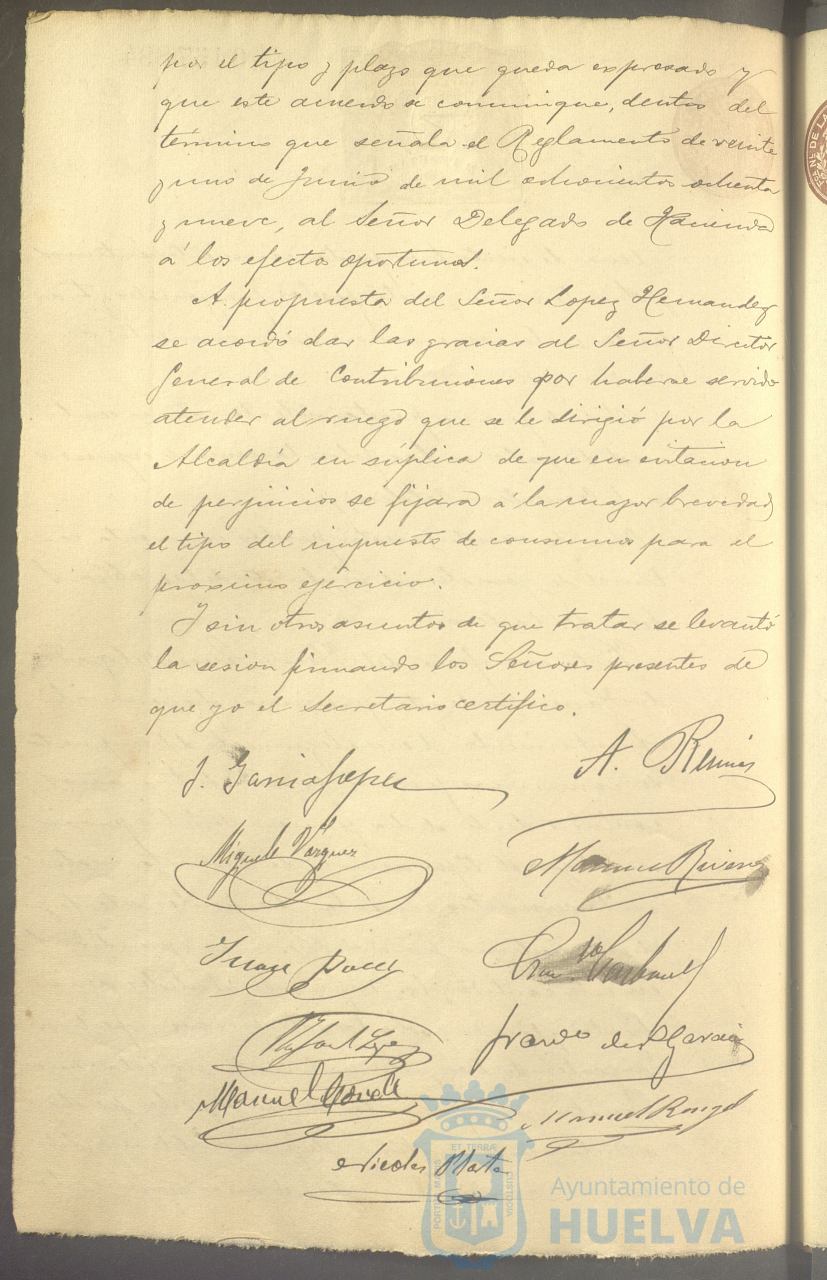 por el tipo y plazo que queda expresado y
que este acuerdo se comunique, dentro del
término que señala el Reglamento de veinte
y uno de Junio de mil ochocientos ochenta
y nueve, al Señor Delegado de Hacienda
á los efecto oportunos.
A propuesta del Señor Lopez Hernandez
se acordó dar las gracias al Señor Director
General de Contribuciones por haberse servido
atender al ruego que se le dirigió por la
Alcaldía en súplica de que en evitacion
de perjuicios se fijara á la mayor brevedad
el tipo del impuesto de consumos para el
próximo ejercicio.
Y sin otros asuntos de que tratar se levantó
la sesion firmando los Señores presentes de
que yo el Secretario certifico.
J. Garcia
A.
Miguel Vazquez
Manuel Rivera
Juan
Rafael Lopez
Garcia
Manuel
Manuel Rangel
Nicolas Mata
PORTUS MARIS
ET TERRÆ
CUSTODIA
Ayuntamiento de
HUELVA